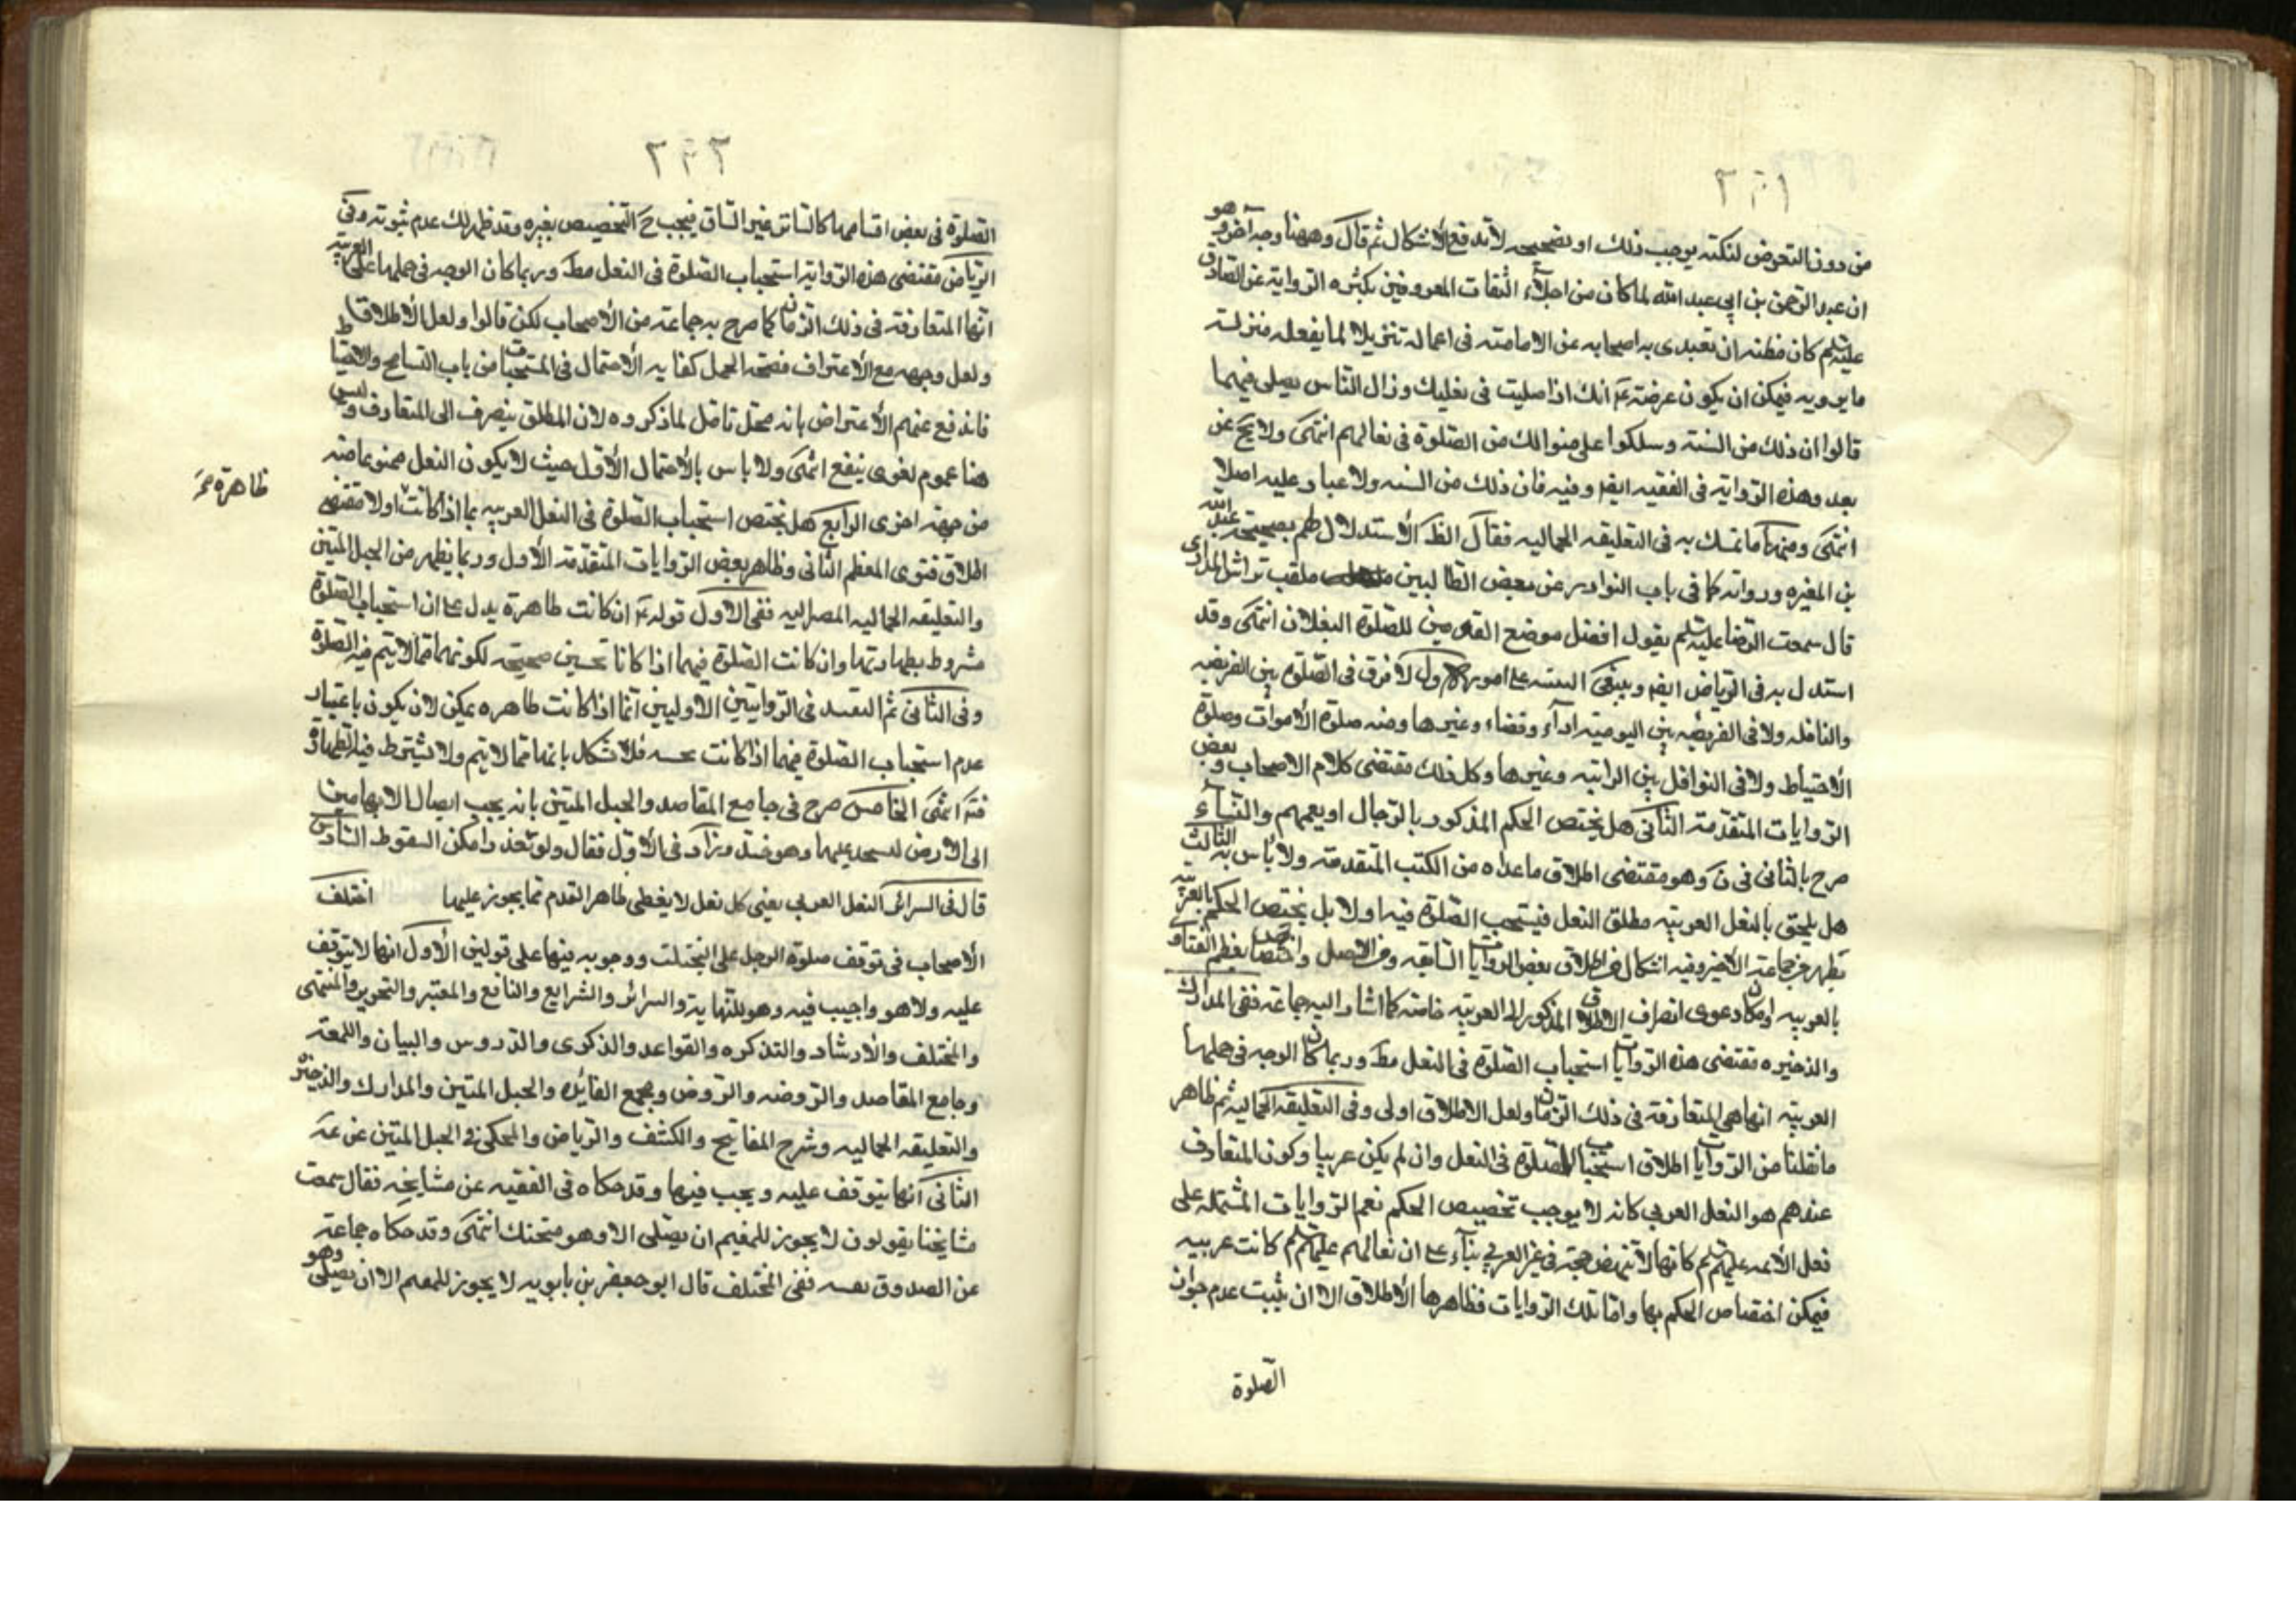 ٢٩١
من دون التعرض لنكتة يوجب ذلك او تصحيحه لاندفع الاشكال ثم قال وههنا وجه آخر وهو
ان عبد الرحمن بن ابى عبد الله لما كان من اجلاء الثقات المعروفين بكثره الرواية عن الصادق
عليه السلم كان مظنه ان يقتدى به اصحابه عن الامامته فى اعماله تنزيلا لما يفعله منزلة
ما يرويه فيمكن ان يكون غرضه ع انك اذا صليت فى نعليك وراك الناس يصلى فيهما
قالوا ان ذلك من السنة وسلكوا على منوالك من الصلوة فى نعالهم انتهى ولا يخ عن
بعد وهذه الرواية فى الفقيه ايضا وفيه فان ذلك من السنه ولا غبار عليه اصلا
انتهى ومنها ما تمسك به فى التعليقه الجماليه فقال الظ الاستدلال لهم بصحيحة عبد الله
بن المغيره ورواته كما فى باب النوادر عن بعض الطالبين ملقب براش المدرى
قال سمعت الرضا عليه السلم يقول افضل موضع القدمين للصلوة النعلان انتهى وقد
استدل به فى الرياض ايضا وينبغى التنبيه على امور الاول لا فرق فى الصلوة بين الفريضه
والنافله ولا فى الفريضه بين اليوميه اداء وقضاء وغيرها ومنه صلوة الاموات وصلوة
الاحتياط ولا فى النوافل بين الراتبه وغيرها وكل ذلك مقتضى كلام الاصحاب وبعض
الروايات المتقدمة الثانى هل يختص الحكم المذكور بالرجال او يعمهم والنساء
صرح بالثانى فى ن وهو مقتضى اطلاق ما عداه من الكتب المتقدمة ولا باس به الثالث
هل يلحق بالنعل العربيه مطلق النعل فيستحب الصلوة فيه او لا بل يختص الحكم بالعربيه
يظهر من جماعة الاخير وفيه اشكال من اطلاق بعض الروايات السابقه ومن الاصل واختصاص معظم الفتاوى
بالعربيه وامكان دعوى انصراف الاطلاق المذكور الى العربيه خاصة كما اشار اليه جماعة ففى المدارك
والذخيره مقتضى هذه الروايات استحباب الصلوة فى النعل مط وربما كان الوجه فى حملها
العربيه انها هى المتعارفة فى ذلك الزمان ولعل الاطلاق اولى وفى التعليقه الجماليه ثم ظاهر
ما نقلنا من الروايات اطلاق استحباب الصلوة فى النعل وان لم يكن عربيا وكون المتعارف
عندهم هو النعل العربى كانه لا يوجب تخصيص الحكم نعم الروايات المشتمله على
فعل الائمه عليهم السلم كانها لا تنهض حجة فى غير العربى بناء على ان نعالهم عليهم السلم كانت عربيه
فيمكن اختصاص الحكم بها واما تلك الروايات فظاهرها الاطلاق الا ان يثبت عدم جواز
الصلوة
٢٩٢
الصلوة فى بعض اقسامها كالساتر غير الساق فيجب ح التخصيص بغيره وقد ظهر لك عدم ثبوته وفى
الرياض مقتضى هذه الرواية استحباب الصلوة فى النعل مط وربما كان الوجه فى حملها على العربيه
انها المتعارفة فى ذلك الزمان كما صرح به جماعة من الاصحاب لكن قالوا ولعل الاطلاق
ولعل وجهه مع الاعتراف بصحة الحمل كفاية الاحتمال فى المستحبات من باب التسامح والاحتياط
فاندفع عنهم الاعتراض بانه محل تامل لما ذكروه لان المطلق ينصرف الى المتعارف وليس
هنا عموم لغوى ينفع انتهى ولا باس بالاحتمال الاول حيث لا يكون النعل ممنوعا منه
من جهة اخرى الرابع هل يختص استحباب الصلوة فى النعل العربيه بما اذا كانت او لا مقتضى
ظاهرة صح
اطلاق فتوى المعظم الثانى وظاهر بعض الروايات المتقدمة الاول وربما يظهر من الحبل المتين
والتعليقه الجماليه المصير اليه ففى الاول قوله ع ان كانت طاهرة يدل على ان استحباب الصلوة
مشروط بطهارتها وان كانت الصلوة فيهما اذا كانا نجسين صحيحه لكونهما مما لا يتم فيه الصلوة
وفى الثانى ثم التقييد فى الروايتين الاوليين انما اذا كانت طاهره يمكن لان يكون باعتبار
عدم استحباب الصلوة فيهما اذا كانت نجسه فلا تشكل بانها مما لا يتم ولا يشترط فيه الطهارة
فتد انتهى الخامس صرح فى جامع المقاصد والحبل المتين بانه يجب ايصال الابهامين
الى الارض ليسجد عليهما وهو جيد وزاد فى الاول فقال ولو تعذر امكن السقوط السادس
قال فى السرائر النعل العربى يعنى كل نعل لا يغطى ظاهر القدم مما يجوز عليها اختلف
الاصحاب فى توقف صلوة الرجل على التحنك ووجوبه فيها على قولين الاول انها لا يتوقف
عليه ولا هو واجب فيه وهو للنهاية والسرائر والشرايع والنافع والمعتبر والتحرير والمنتهى
والمختلف والارشاد والتذكره والقواعد والذكرى والدروس والبيان واللمعة
وجامع المقاصد والروضه والروض ومجمع الفايده والحبل المتين والمدارك والذخيرة
والتعليقه الجماليه وشرح المفاتيح والكشف والرياض والمحكى فى الحبل المتين عن عة
الثانى انها يتوقف عليه ويجب فيها وقد حكاه فى الفقيه عن مشايخه فقال سمعت
مشايخنا يقولون لا يجوز للمعمم ان يصلى الا وهو متحنك انتهى وقد حكاه جماعة
عن الصدوق نفسه ففى المختلف قال ابو جعفر بن بابويه لا يجوز للمعمم الا ان يصلى وهو